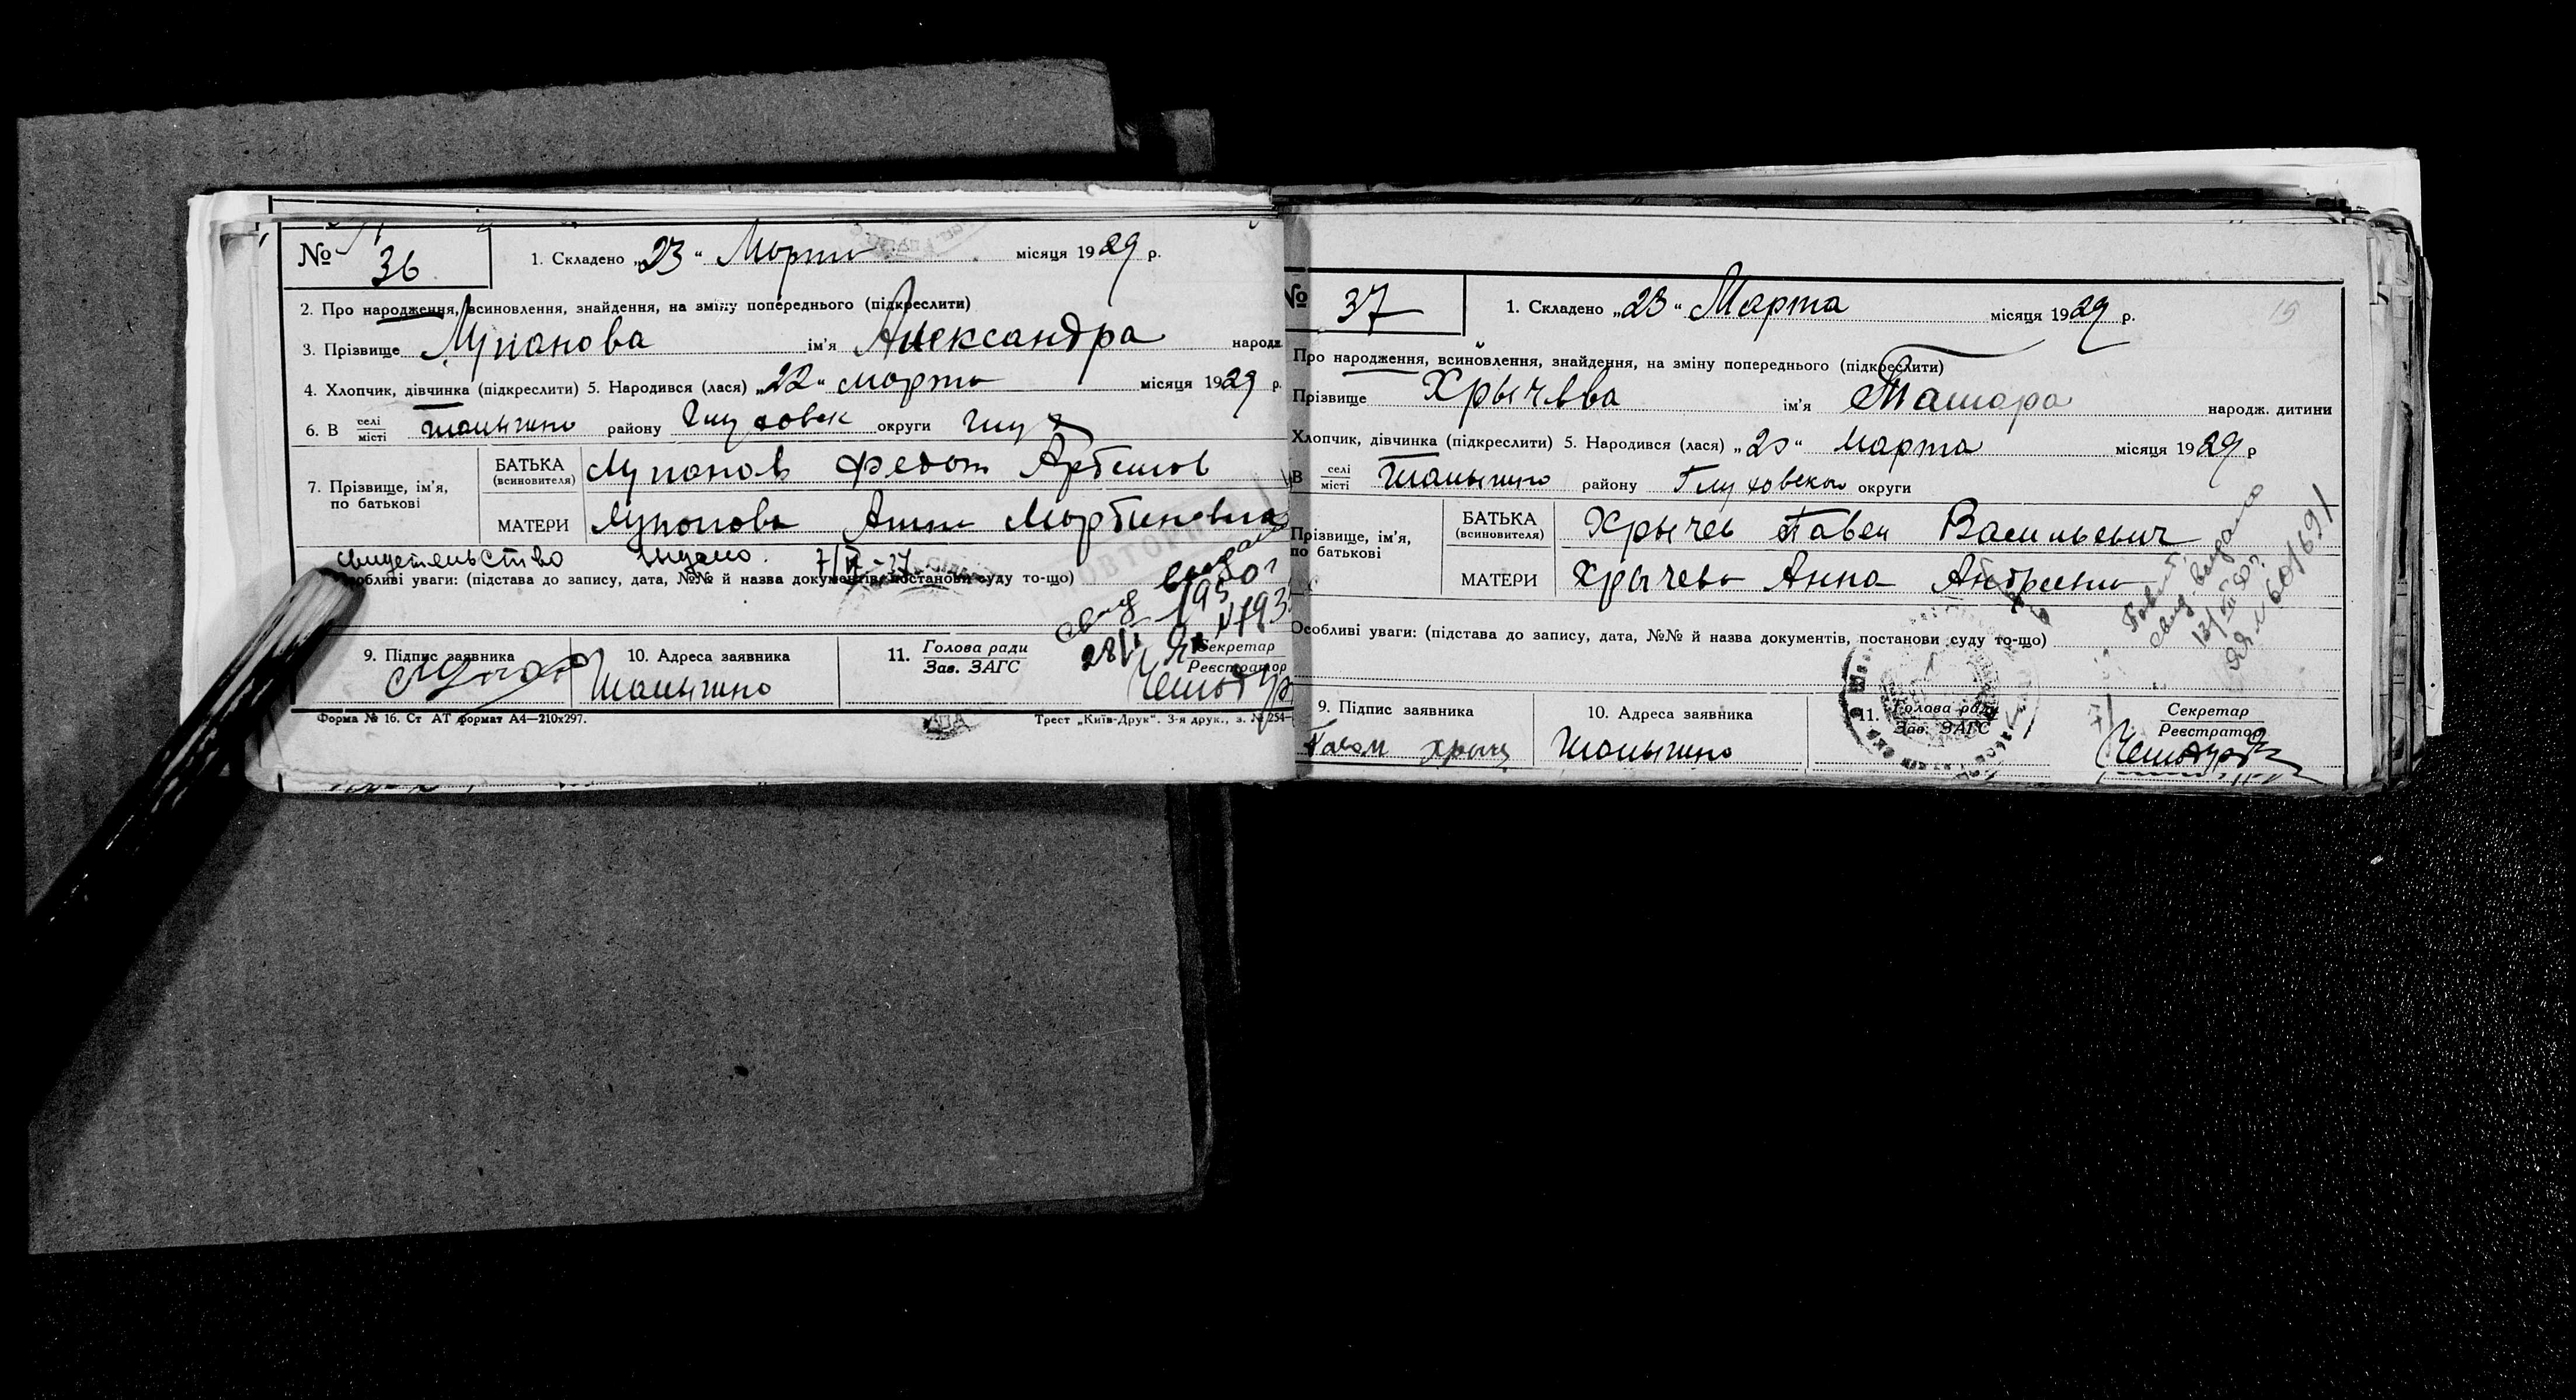 № 36
1. Складено „23“ Марта місяця 1929 р.
2. Про народження, всиновлення, знайдення, на зміну попереднього (підкреслити)
3. Прізвище Лупанова ім'я Александра народж
4. Хлопчик, дівчинка (підкреслити) 5. Народився (лася) „22“ марта місяця 1929 р.
6. В селі/місті Шалыгино району Глуховск округи Глух
7. Прізвище, ім'я, по батькові
БАТЬКА (всиновителя) Лупанов Федот
МАТЕРИ Лупанова Анна Мартиновна
свидетельство выдано.
Особливі уваги: (підстава до запису, дата, №№ й назва документів, постанови суду то-що)
9. Підпис заявника
10. Адреса заявника
11. Голова ради
Зав. ЗАГС
Секретар
Реєстратор
Шалыгино
Форма № 16. Ст АТ формат А4—210х297.
Трест „Київ-Друк“. 3-я друк., з. № 254-
№ 37
1. Складено „23“ Марта місяця 1929 р.
19
Про народження, всиновлення, знайдення, на зміну попереднього (підкреслити)
Прізвище Хрычева ім'я Тамара народж. дитини
Хлопчик, дівчинка (підкреслити) 5. Народився (лася) марта місяця 1929 р
В селі/місті Шалыгино району Глуховском округи
Прізвище, ім'я, по батькові
БАТЬКА (всиновителя) Хрычев Павел Васильевич
МАТЕРИ Хрычева Анна Андреевна
Особливі уваги: (підстава до запису, дата, №№ й назва документів, постанови суду то-що)
9. Підпис заявника
10. Адреса заявника
11. Голова ради
Зав. ЗАГС
Секретар
Реєстратор
Шалыгино